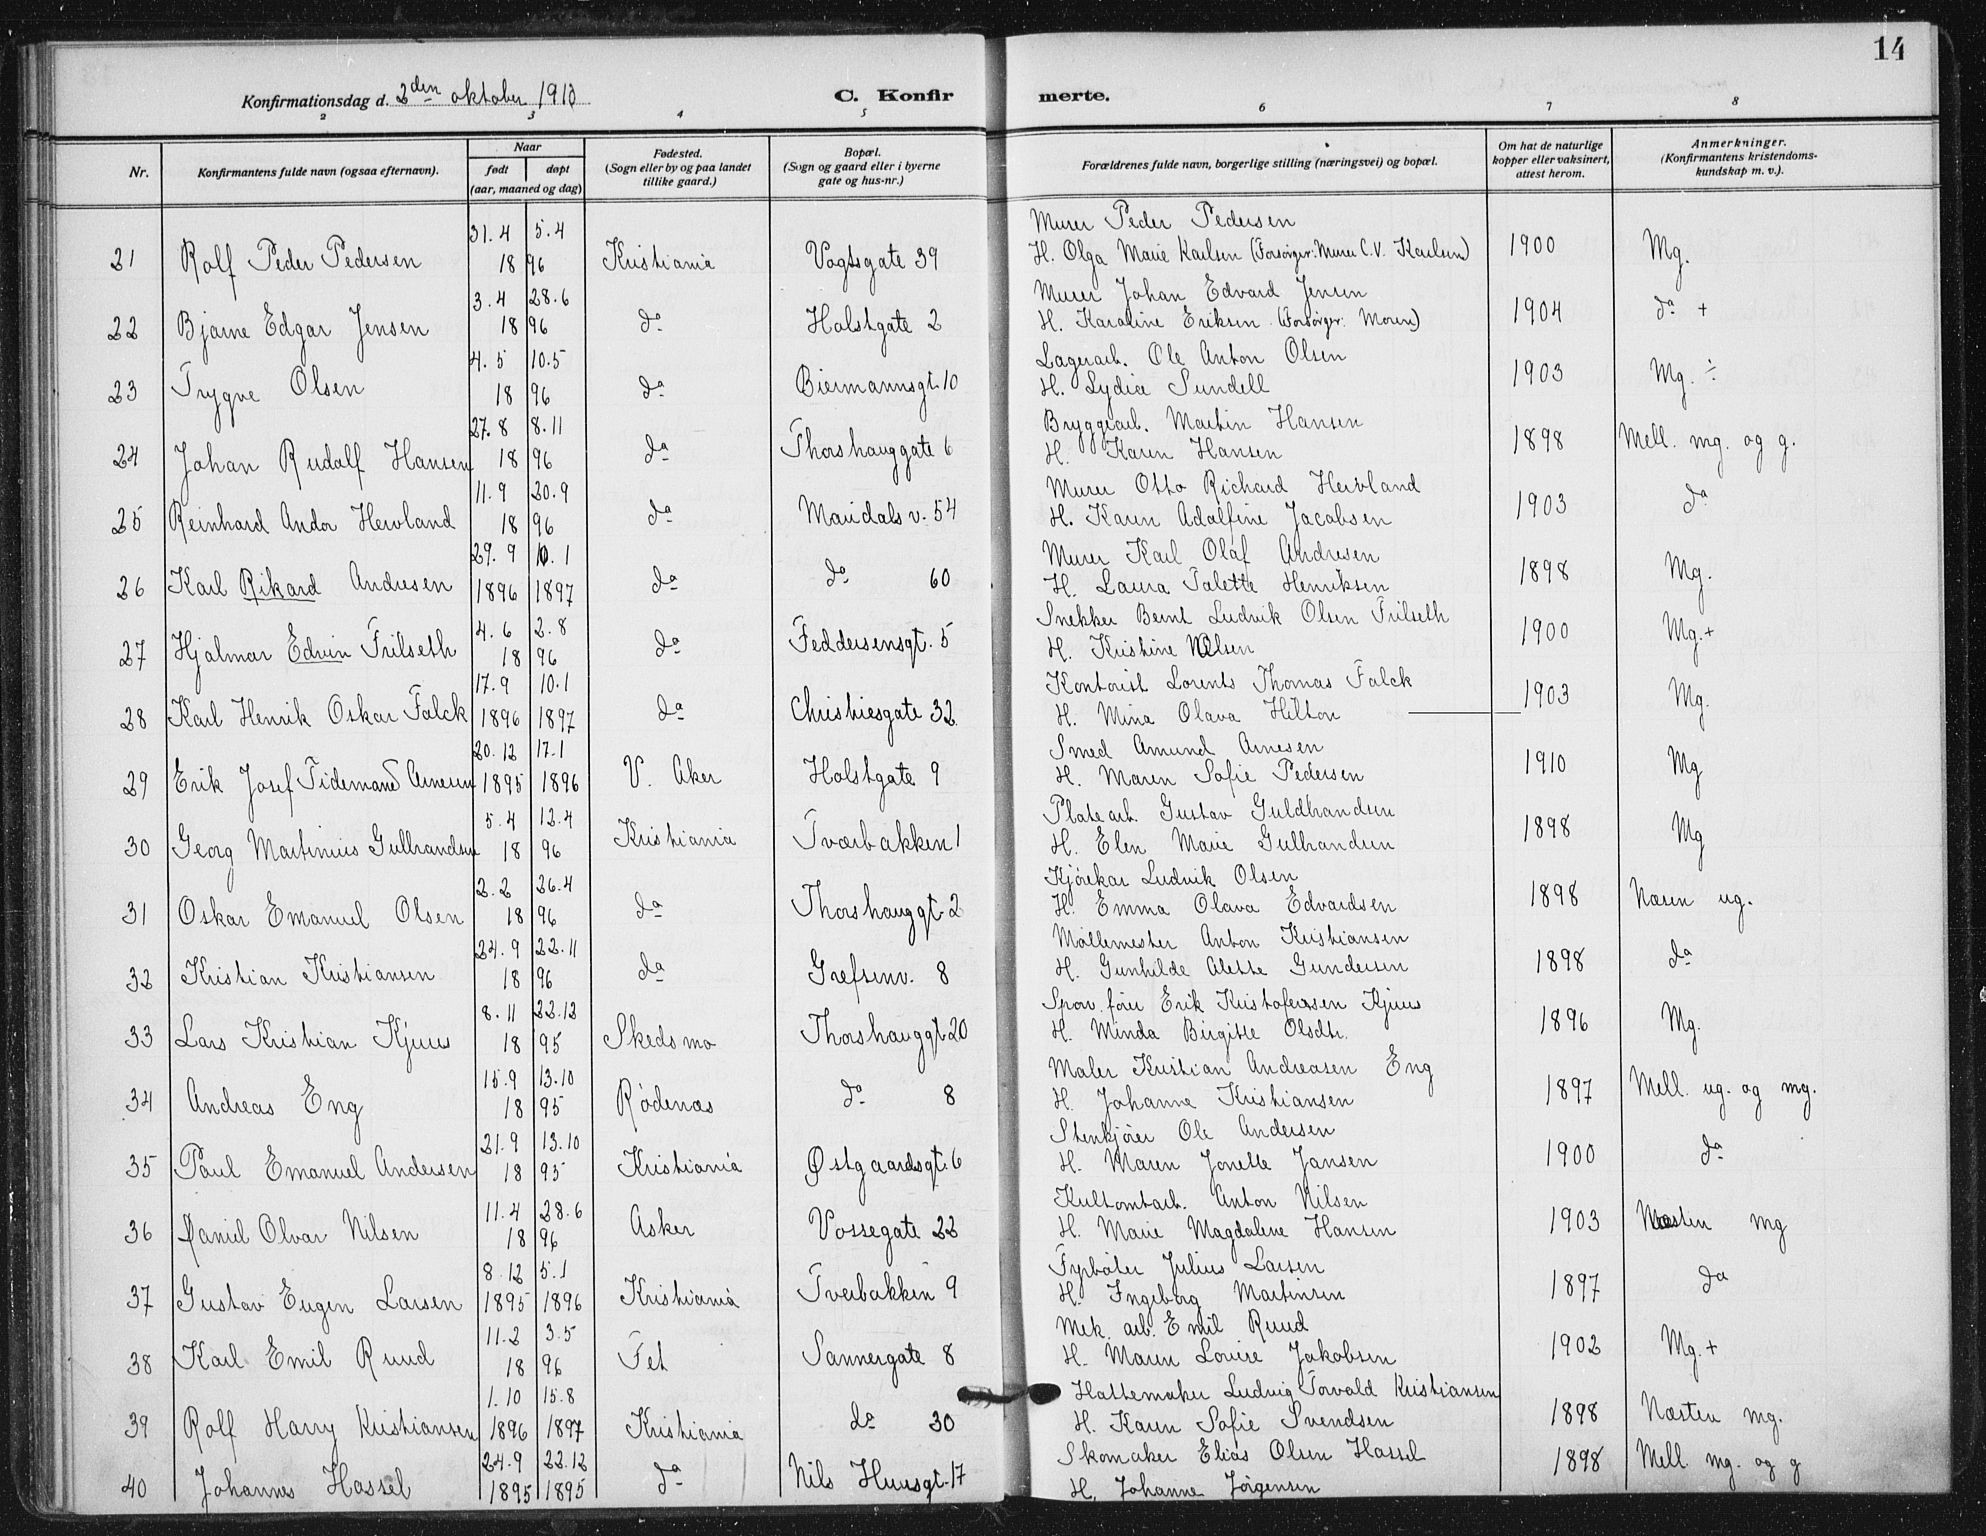 14
Konfirmationsdag d. 2den oktober 1910
C. Konfirmerte.
2 3 4 5 6 7 8
Nr.
Konfirmantens fulde navn (ogsaa efternavn).
Naar
født døpt
(aar, maaned og dag)
Fødested.
(Sogn eller by og paa landet
tillike gaard.)
Bopæl.
(Sogn og gaard eller i byerne
gate og hus-nr.)
Forældrenes fulde navn, borgerlige stilling (næringsvei) og bopæl.
Om hat de naturlige
kopper eller vaksinert,
attest herom.
Anmerkninger.
(Konfirmantens kristendoms-
kundskap m. v.).
31.4 5.4 Murer Peder Pedersen
21 Rolf Peder Pedersen 18 96 Kristiania Vogtsgate 39 H. Olga Marie Karlsen (Forsørger: Murer C.V. Karlsen) 1900 Mg.
3.4 28.6 Murer Johan Edvard Jensen
22 Bjarne Edgar Jensen 18 96 do Holstgate 2 H. Karoline Eriksen (Forsørger: Moren) 1904 do +
4.5 10.5 Lagerarb. Ole Anton Olsen
23 Trygve Olsen 18 96 do Biermannsgt. 10 H. Lydia Sundell 1903 Mg. ÷
27.8 8.11 Bryggearb. Martin Hansen
24 Johan Rudolf Hansen 18 96 do Thorshauggate 6 H. Karen Hansen 1898 Mell. mg. og g.
11.9 20.9 Murer Otto Richard Hervland
25 Reinhard Andor Hervland 18 96 do Maridals v. 54 H. Karen Adolfine Jacobsen 1903 do
29.9 10.1 Murer Karl Olaf Andresen
26 Karl Rikard Andresen 1896 1897 do do 60 H. Laura Talette Henriksen 1898 Mg.
4.6 2.8 Snekker Bernt Ludvik Olsen Trilseth
27 Hjalmar Edvin Trilseth 18 96 do Feddersensgt. 5 H. Kristine Olsen 1900 Mg. +
17.9 10.1 Kontorist Lorents Thomas Falck
28 Karl Henrik Oskar Falck 1896 1897 do Christiesgate 32 H. Mina Olava Hilton 1903 Mg.
20.12 17.1 Smed Amund Arnesen
29 Erik Josef Tidemand Arnesen 1895 1896 V. Aker Holstgate 9 H. Maren Sofie Pedersen 1910 Mg
5.4 12.4 Platearb. Gustav Guldbrandsen
30 Georg Martinius Gulbrandsen 18 96 Kristiania Tværbakken 1 H. Elen Marie Gulbrandsen 1898 Mg
2.2 26.4 Kjørekar Ludvik Olsen
31 Oskar Emanuel Olsen 18 96 do Thorshauggt. 2 H. Emma Olava Edvardsen 1898 Noren ug.
24.9 22.11 Møllemester Anton Kristiansen
32 Kristian Kristiansen 18 96 do Grefsenv. 8 H. Gunhilde Alette Gundersen 1898 do
8.11 22.12 Sporv. fører Erik Kristofersen Kjuus
33 Lars Kristian Kjuus 18 95 Skedsmo Thorshauggt. 20 H. Minda Birgitte Olsdtr. 1896 Mg.
15.9 13.10 Maler Kristian Andreasen Eng
34 Andreas Eng 18 95 Rødenæs do 8 H. Johanne Kristiansen 1897 Mell. ug. og mg.
21.9 13.10 Stenkjører Ole Andersen
35 Paul Emanuel Andersen 18 95 Kristiania Østgaardsgt. 6 H. Maren Jonette Jansen 1900 do
11.4 28.6 Kultomtarb. Anton Nilsen
36 Daniel Olvar Nilsen 18 96 Asker Vossegate 22 H. Marie Magdalene Hansen 1903 Næsten mg
8.12 5.1 Fyrbøter Julius Larsen
37 Gustav Eugen Larsen 1895 1896 Kristiania Tverbakken 9 H. Ingeborg Martinsen 1897 do
11.2 3.5 Mek. arb. Emil Ruud
38 Karl Emil Ruud 18 96 Fet Sannergate 8 H. Maren Lovise Jakobsen 1902 Mg. +
1.10 15.8 Hattemaker Ludvig Torvald Kristiansen
39 Rolf Harry Kristiansen 1896 1897 Kristiania do 30 H. Karen Sofie Svendsen 1898 Næsten mg.
24.9 22.12 Skomaker Elias Olsen Hassel
40 Johannes Hassel 1895 1895 do Nils Huusgt. 17 H. Johanne Jørgensen 1898 Mell. mg. og g